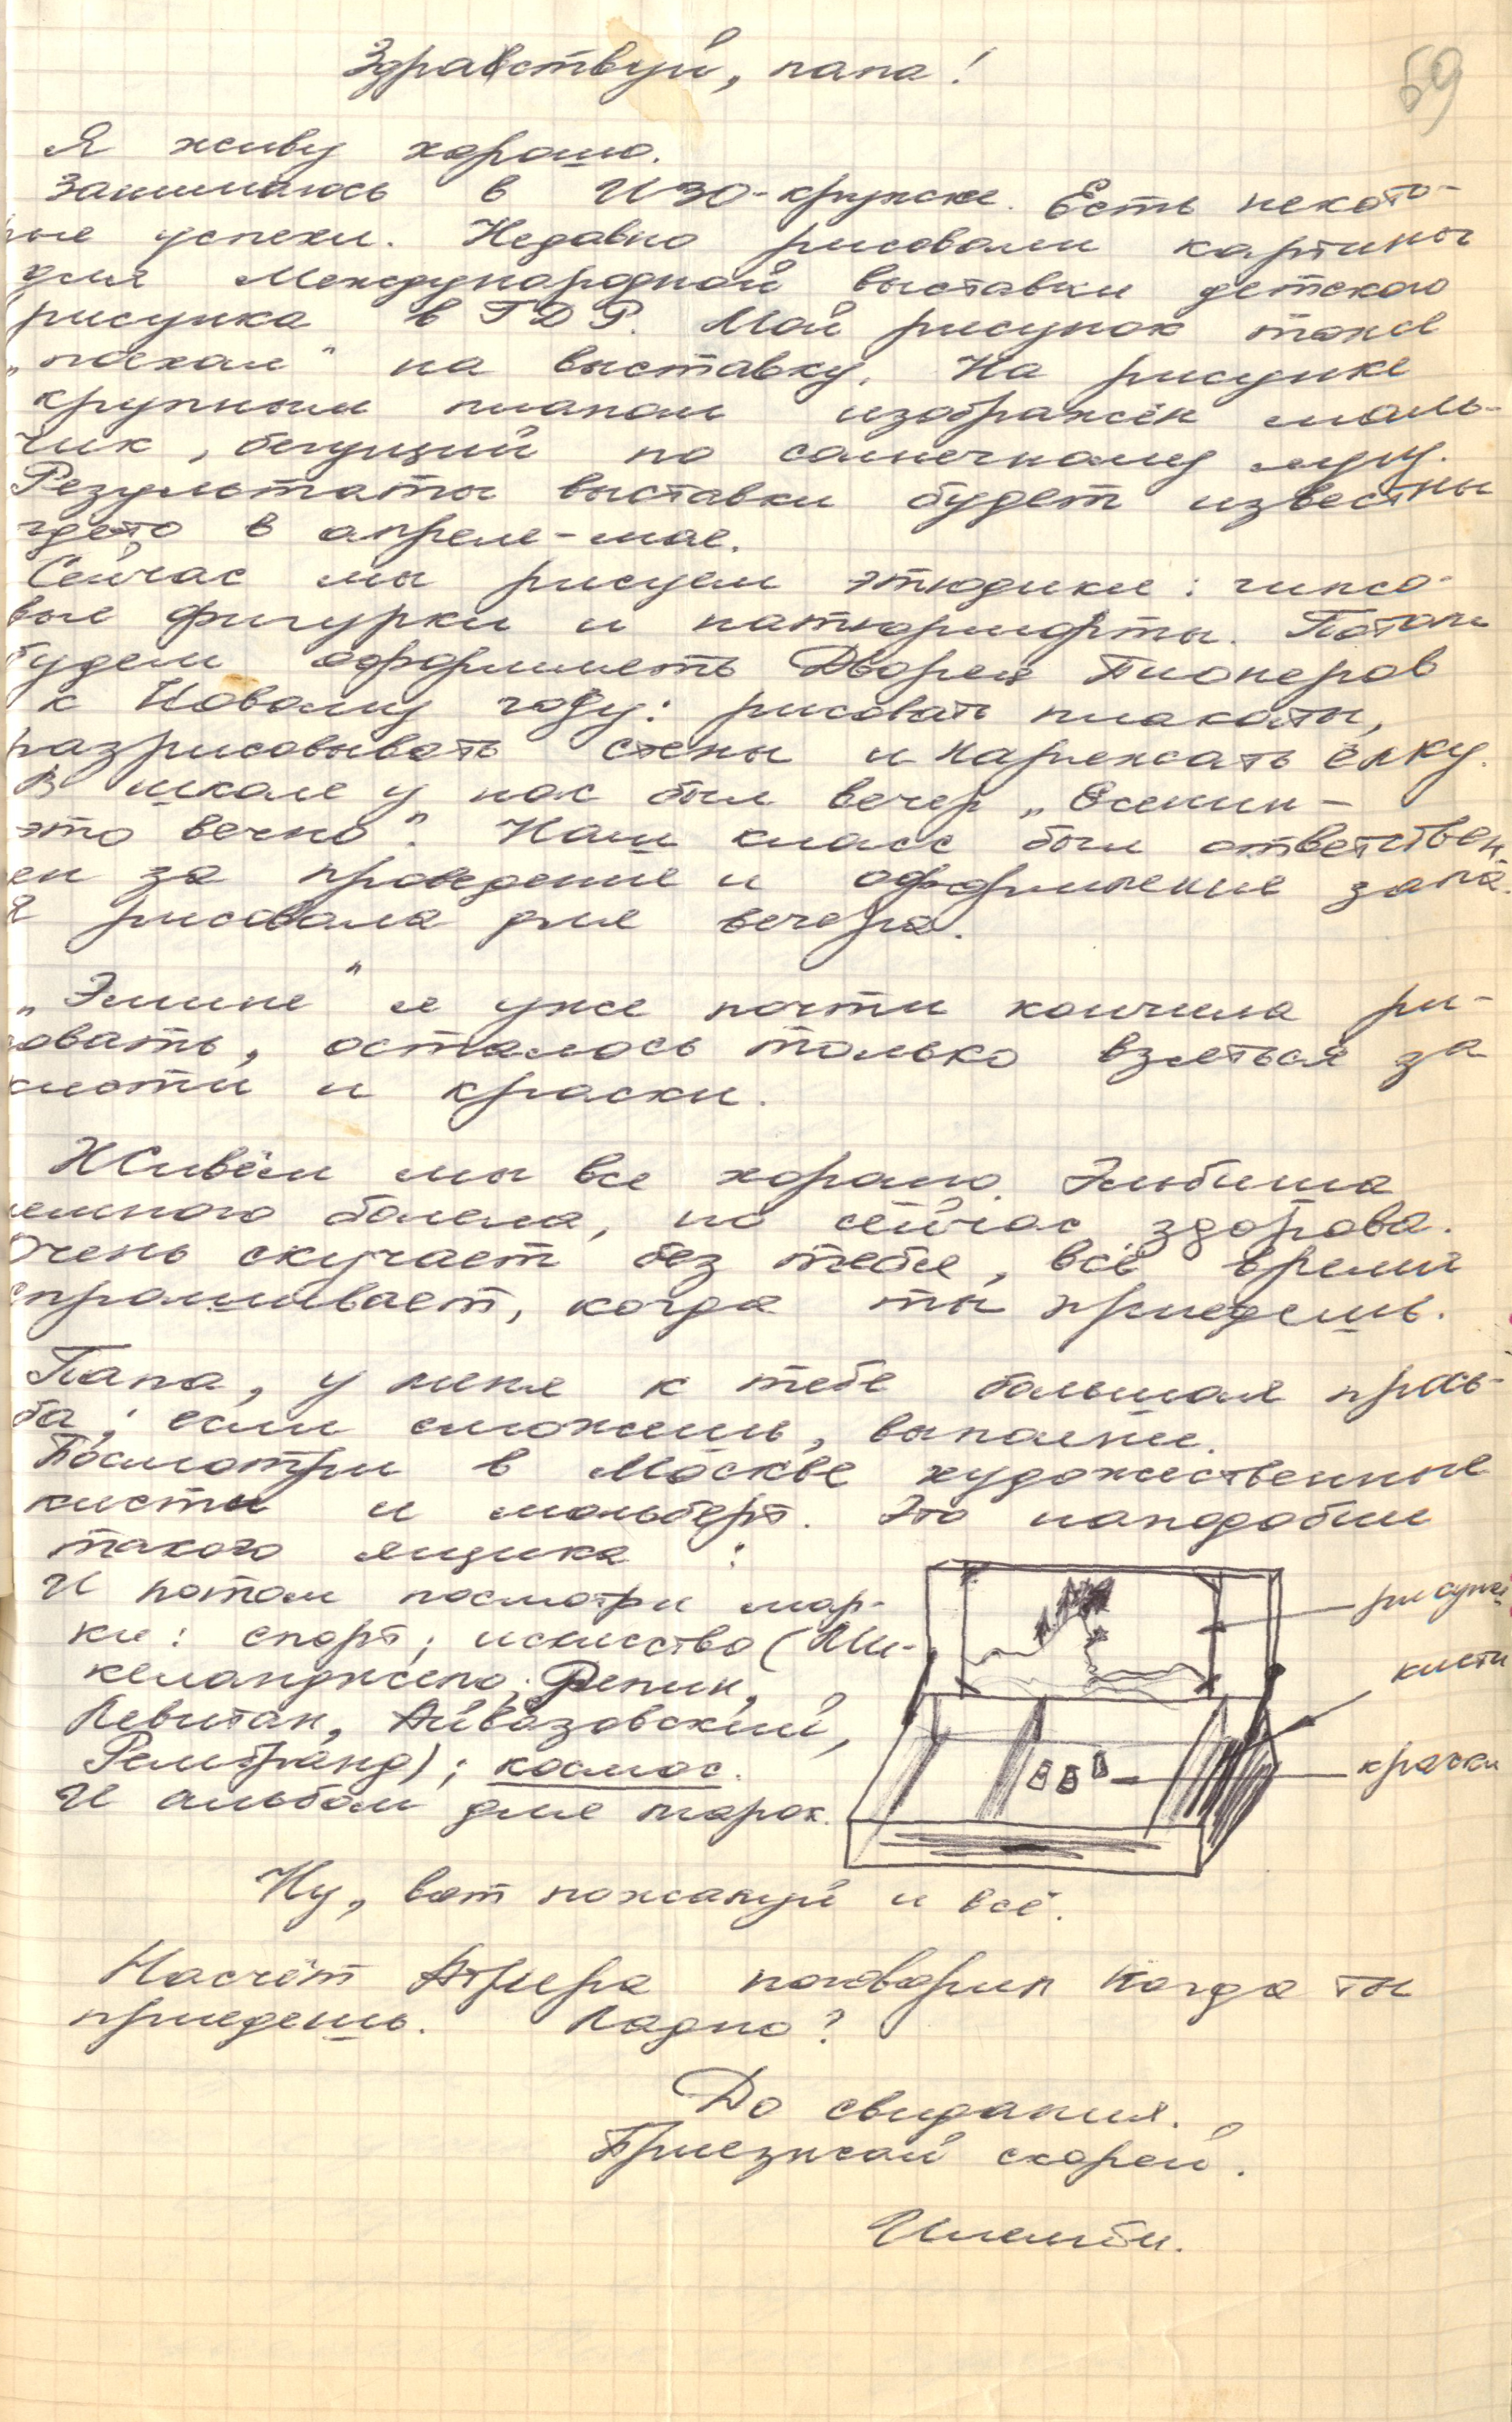 59
Здравствуй, папа!
Я живу хорошо.
Занимаюсь в ИЗО-кружке. Есть некото-
рые успехи. Недавно рисовали картины
для Международной выставки детского
рисунка в ГДР. Мой рисунок тоже
„поехал" на выставку. На рисунке
крупным планом изображён маль-
чик, бегущий по солнечному лугу.
Результаты выставки будет известны
где-то в апреле-мае.
Сейчас мы рисуем этюдики: гипсо-
вые фигурки и натюрморты. Потом
будем оформлять Дворец Пионеров
к Новому году: рисовать плакаты,
разрисовывать стены и наряжать ёлку.
В школе у нас был вечер „Есенин –
это вечно". Наш класс был ответствен-
ен за проведение и оформление зала.
Я рисовала для вечера.
я уже почти кончила ри-
совать, осталось только взяться за
кисти и краски.
Живём мы все хорошо.
немного болела, но сейчас здорова.
Очень скучает без тебя, всё время
спрашивает, когда ты приедешь.
Папа, у меня к тебе большая прось-
ба; если сможешь, выполни.
Посмотри в Москве художественные
кисти и мольберт. Это наподобии
такого ящика:
И потом посмотри мар-
ки: спорт; искусство (Ми-
келанджело, Репин,
Левитан, Айвазовский,
Рембранд); космос.
И альбом для марок.
рисунок
кисти
краски
Ну, вот пожалуй и всё.
Насчёт поговорим когда ты
приедешь. Ладно?
До свидания.
Приезжай скорей.